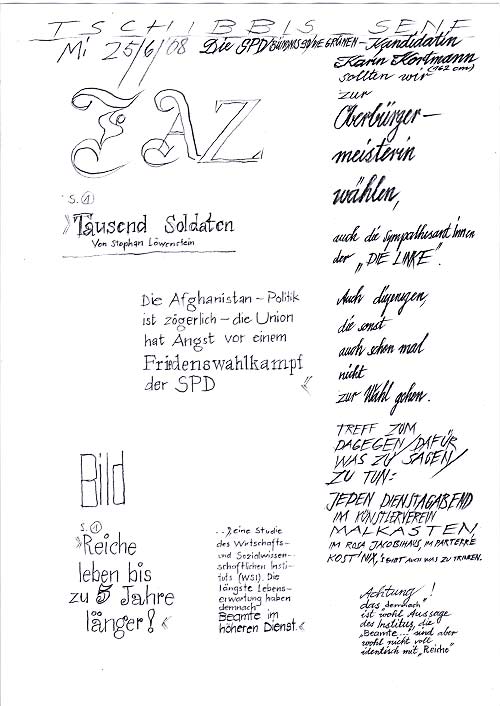 TSCHIBBIS SENF
Mi 25/6/08 Die SPD/BÜNDNIS 90/DIE GRÜNEN – Kandidatin
Karin Kortmann
(162 cm)
sollten wir
zur
Oberbürger-
meisterin
wählen,
auch die Sympathisant innen
der „DIE LINKE".
Auch diejenigen,
die sonst
auch schon mal
nicht
zur Wahl gehen.
TREFF ZUM
DAGEGEN/DAFÜR
WAS ZU SAGEN/
ZU TUN:
JEDEN DIENSTAGABEND
IM KÜNSTLERVEREIN
MALKASTEN
IM ROSA JACOBIHAUS, IM PARTERRE
KOST' NIX, 's GIBT AUCH WAS ZU TRINKEN.
Achtung!
das „demnach"
ist wohl Aussage
des Institus, die
„Beamte..." sind aber
wohl nicht voll
identisch mit „Reiche"
FAZ
S. 1
»Tausend Soldaten
Von Stephan Löwenstein
Die Afghanistan – Politik
ist zögerlich – die Union
hat Angst vor einem
Fridenswahlkampf
der SPD «
Bild
S. 1
»Reiche
leben bis
zu 5 Jahre
länger! «
...) eine Studie
des Wirtschafts-
und Sozialwissen-
schaftlichen Insti-
tuts (WSI). Die
längste Lebens-
erwartung haben
demnach
Beamte im
höheren Dienst. «